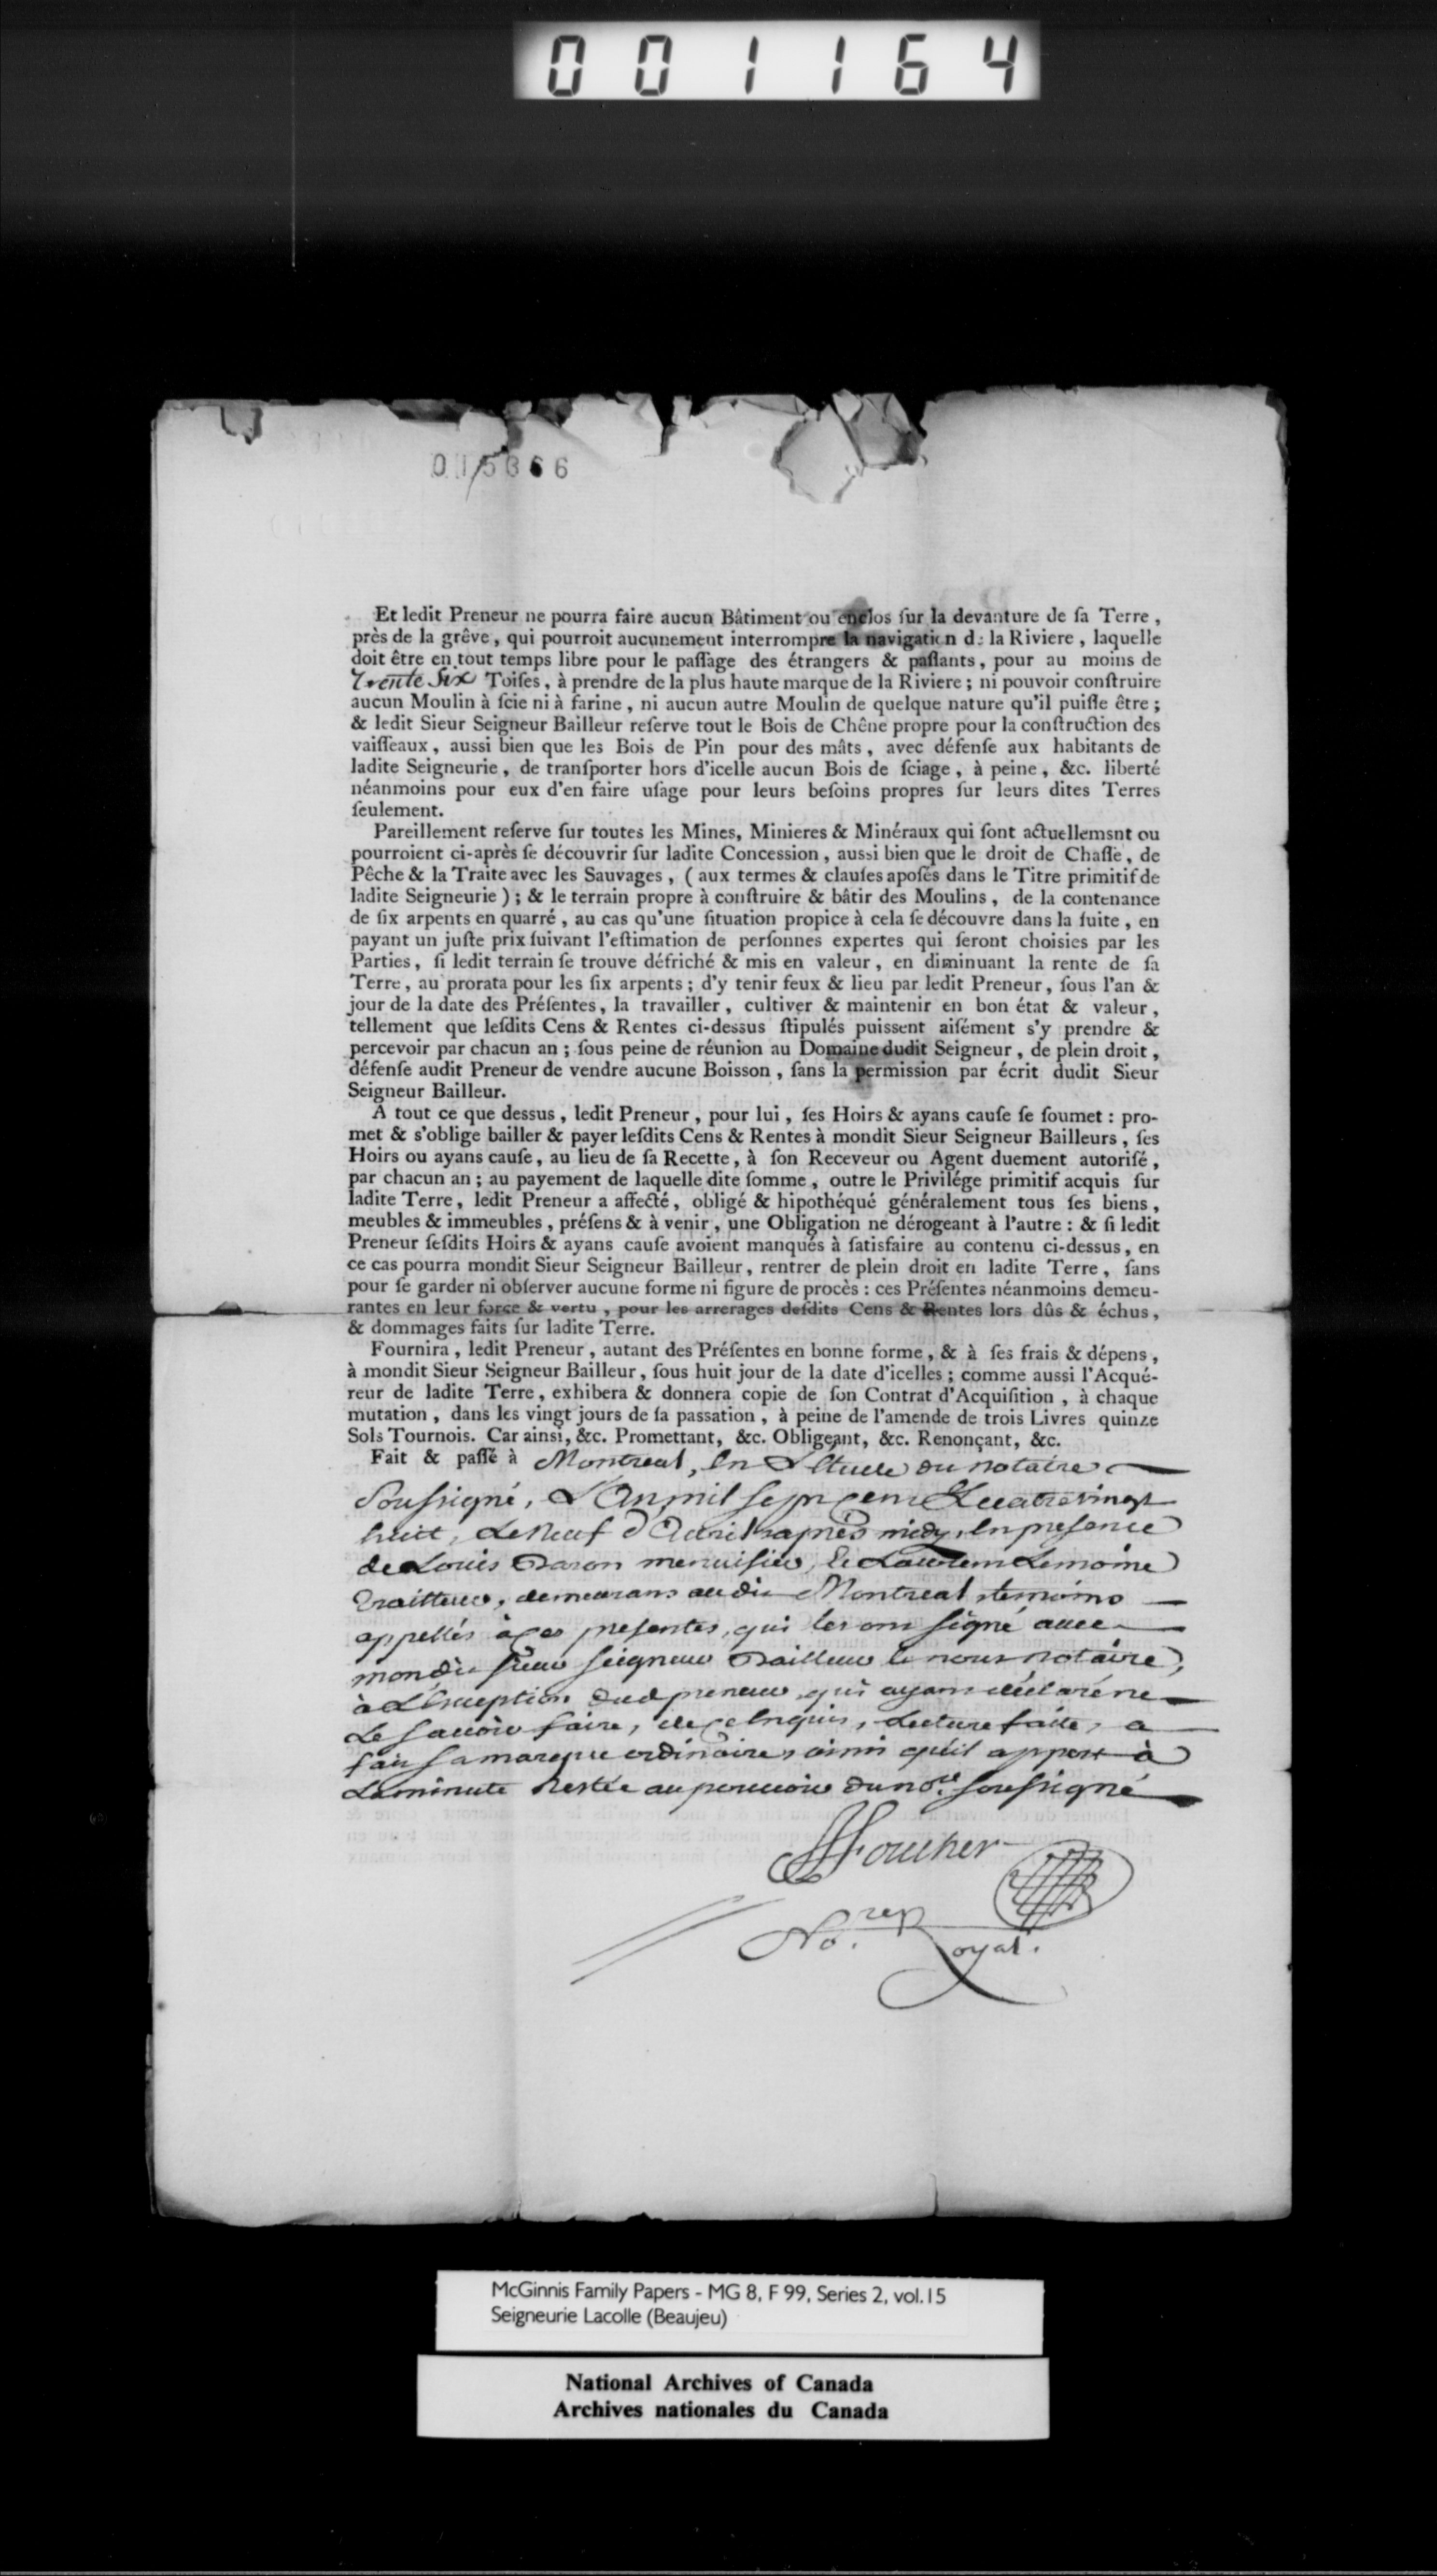 001164
015366
Et ledit Preneur ne pourra faire aucun Bâtiment ou enclos ſur la devanture de ſa Terre,
près de la grêve, qui pourroit aucunement interrompre la navigation de la Riviere, laquelle
doit être en tout temps libre pour le paſſage des étrangers & paſſants, pour au moins de
trente Six Toiſes, à prendre de la plus haute marque de la Riviere; ni pouvoir conſtruire
aucun Moulin à ſcie ni à farine, ni aucun autre Moulin de quelque nature qu'il puiſſe être;
& ledit Sieur Seigneur Bailleur reſerve tout le Bois de Chêne propre pour la conſtruction des
vaiſſeaux, aussi bien que les Bois de Pin pour des mâts, avec défenſe aux habitants de
ladite Seigneurie, de tranſporter hors d'icelle aucun Bois de ſciage, à peine, &c. liberté
néanmoins pour eux d'en faire uſage pour leurs beſoins propres ſur leurs dites Terres
ſeulement.
Pareillement reſerve ſur toutes les Mines, Minieres & Minéraux qui ſont actuellemsnt ou
pourroient ci-après ſe découvrir ſur ladite Concession, aussi bien que le droit de Chaſſe, de
Pêche & la Traite avec les Sauvages, (aux termes & clauſes apoſés dans le Titre primitif de
ladite Seigneurie); & le terrain propre à conſtruire & bâtir des Moulins, de la contenance
de ſix arpents en quarré, au cas qu'une ſituation propice à cela ſe découvre dans la ſuite, en
payant un juſte prix ſuivant l'eſtimation de perſonnes expertes qui ſeront choisies par les
Parties, ſi ledit terrain ſe trouve défriché & mis en valeur, en diminuant la rente de ſa
Terre, au prorata pour les ſix arpents; d'y tenir feux & lieu par ledit Preneur, ſous l'an &
jour de la date des Préſentes, la travailler, cultiver & maintenir en bon état & valeur,
tellement que leſdits Cens & Rentes ci-dessus ſtipulés puissent aiſément s'y prendre &
percevoir par chacun an; ſous peine de réunion au Domaine dudit Seigneur, de plein droit,
défenſe audit Preneur de vendre aucune Boisson, ſans la permission par écrit dudit Sieur
Seigneur Bailleur.
A tout ce que dessus, ledit Preneur, pour lui, ſes Hoirs & ayans cauſe ſe ſoumet: pro-
met & s'oblige bailler & payer leſdits Cens & Rentes à mondit Sieur Seigneur Bailleurs, ſes
Hoirs ou ayans cauſe, au lieu de ſa Recette, à ſon Receveur ou Agent duement autoriſé,
par chacun an; au payement de laquelle dite ſomme, outre le Privilége primitif acquis ſur
ladite Terre, ledit Preneur a affecté, obligé & hipothéqué généralement tous ſes biens,
meubles & immeubles, préſens & à venir, une Obligation ne dérogeant à l'autre: & ſi ledit
Preneur ſeſdits Hoirs & ayans cauſe avoient manqués à ſatisfaire au contenu ci-dessus, en
ce cas pourra mondit Sieur Seigneur Bailleur, rentrer de plein droit en ladite Terre, ſans
pour ſe garder ni obſerver aucune forme ni figure de procès: ces Préſentes néanmoins demeu-
rantes en leur force & vertu, pour les arrerages deſdits Cens & Rentes lors dûs & échus,
& dommages faits ſur ladite Terre.
Fournira, ledit Preneur, autant des Préſentes en bonne forme, & à ſes frais & dépens,
à mondit Sieur Seigneur Bailleur, ſous huit jour de la date d'icelles; comme aussi l'Acqué-
reur de ladite Terre, exhibera & donnera copie de ſon Contrat d'Acquiſition, à chaque
mutation, dans les vingt jours de ſa passation, à peine de l'amende de trois Livres quinze
Sols Tournois. Car ainsi, &c. Promettant, &c. Obligeant, &c. Renonçant, &c.
Fait & paſſé à Montreal, En L'Etude du notaire
Soussigné, L'An mil sept cent Quatre vingt
huit, Le Neuf d'Avril après midy, En presence
de Louis Baron menuisier, Et Laurent Lemoine
Traitteur, demeurans audit Montreal temoins
appellés à ces presentes, qui les ont signé avec
mondit sieur seigneur Bailleur & nous notaire,
à L'Exception dud preneur, qui ayant déclaré ne
Le savoir faire, de ce Enquis, Lecture faite, a
fait sa marque ordinaire, ainsi qu'il appert à
La minute Restée au pouvoir du no.re soussigné
Foucher
No. rep Royal.
McGinnis Family Papers - MG 8, F 99, Series 2, vol.15
Seigneurie Lacolle (Beaujeu)
National Archives of Canada
Archives nationales du Canada